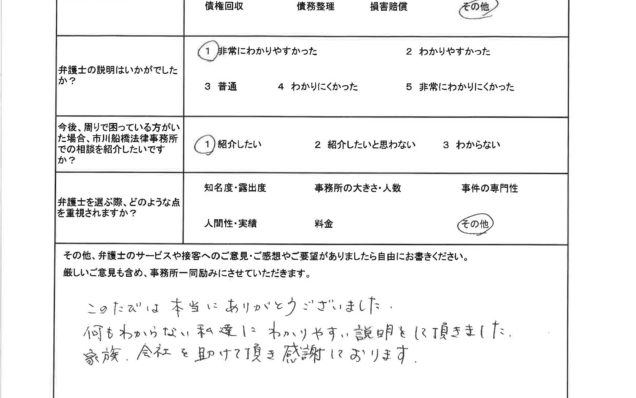 債権回収 債務整理 損害賠償 その他
弁護士の説明はいかがでした
か?
1 非常にわかりやすかった 2 わかりやすかった
3 普通 4 わかりにくかった 5 非常にわかりにくかった
今後、周りで困っている方がい
た場合、市川船橋法律事務所
での相談を紹介したいです
か?
1 紹介したい 2 紹介したいと思わない 3 わからない
弁護士を選ぶ際、どのような点
を重視されますか?
知名度・露出度 事務所の大きさ・人数 事件の専門性
人間性・実績 料金 その他
その他、弁護士のサービスや接客へのご意見・ご感想やご要望がありましたら自由にお書きください。
厳しいご意見も含め、事務所一同励みにさせていただきます。
このたびは本当にありがとうございました.
何もわからない私達にわかりやすい説明をして頂きました.
家族.会社を助けて頂き感謝しております.